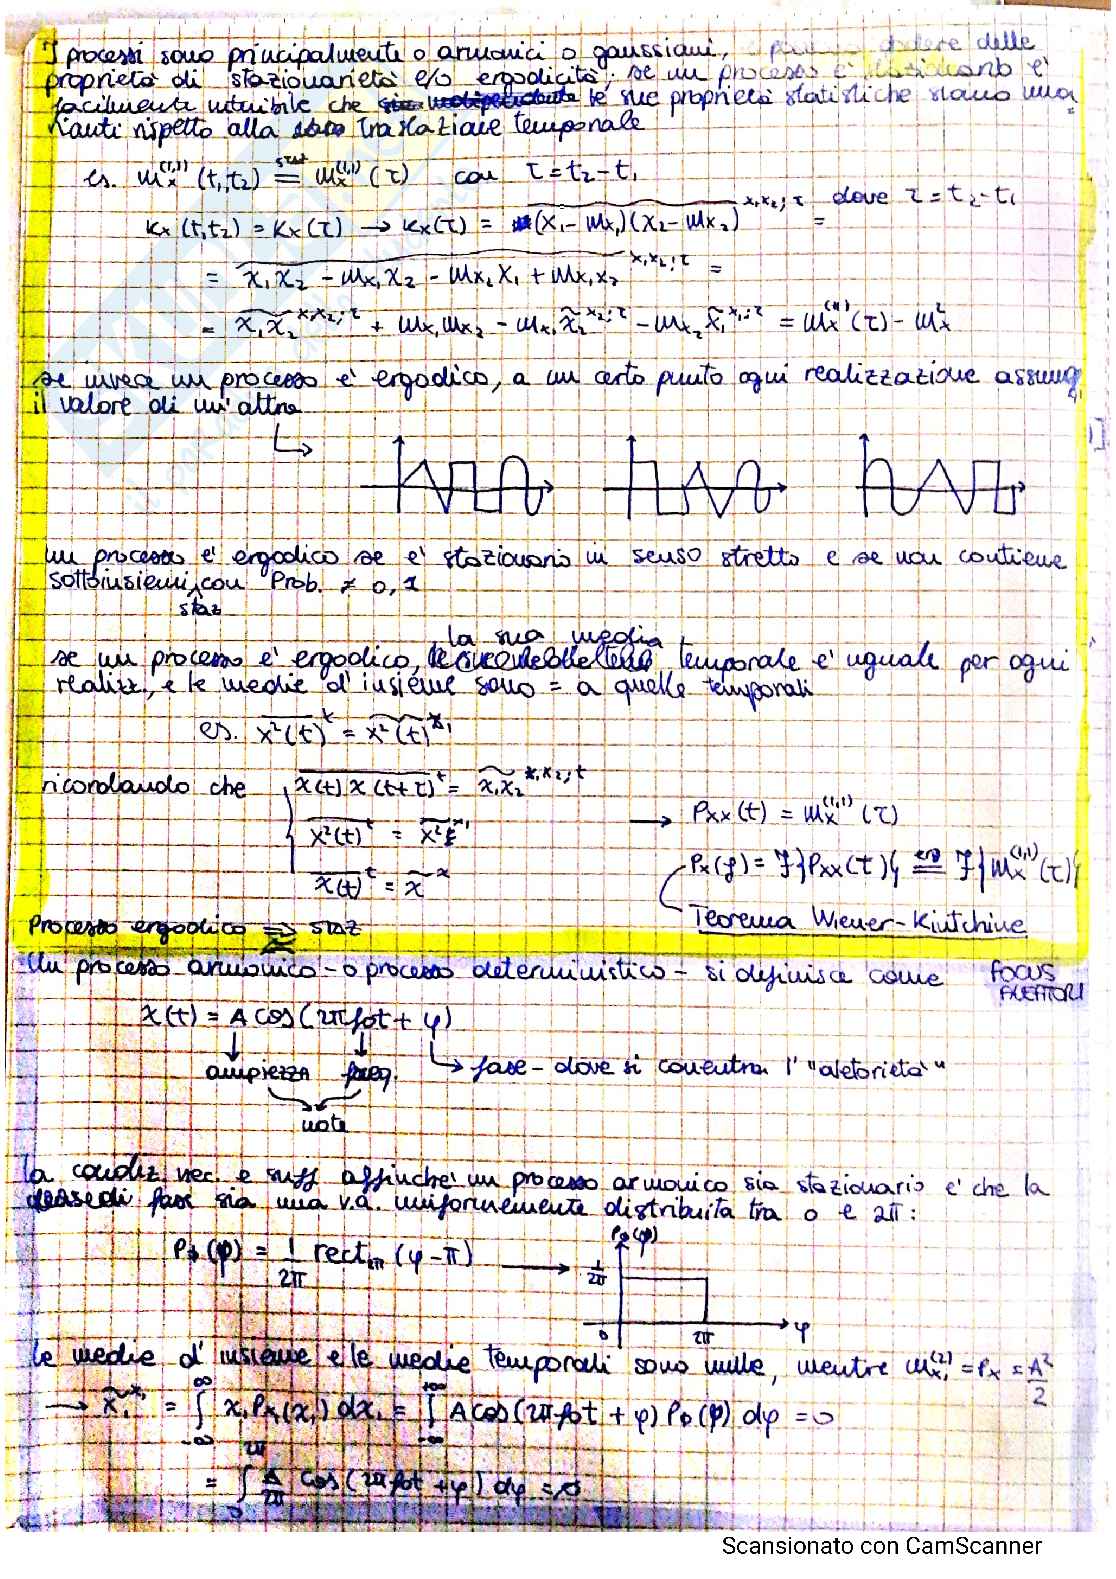 I processi sono principalmente o armonici o gaussiani, e possono godere delle
proprietà di stazionarietà e/o ergodicità: se un processo è stazionario è
facilmente intuibile che le sue proprietà statistiche siano inva
rianti rispetto alla traslazione temporale
es. m_x^(1,1) (t1,t2) =^staz m_x^(1,1) (τ) con τ = t2 - t1
Kx (t1t2) = Kx(τ) → Kx(τ) = (x1 - mx1)(x2 - mx2)^x1x2;τ = dove τ = t2 - t1
= x1x2 - mx1x2 - mx2x1 + mx1x2^x1x2;τ =
= x1x2^x1x2;τ + mx1mx2 - mx1x2^x2;τ - mx2x1^x1;τ = m_x^(11)(τ) - m_x^2
se invece un processo è ergodico, a un certo punto ogni realizzazione assume
il valore di un'altra
un processo è ergodico se è stazionario in senso stretto e se non contiene
sottoinsiemi staz con Prob. ≠ 0,1
la sua media
se un processo è ergodico, temporale è uguale per ogni
realizz., e le medie d'insieme sono = a quelle temporali
es. x²(t)^t = x²(t)^x1
ricordando che x(t) x(t+τ)^t = x1x2^x1x2;t
x²(t)^t = x²^x1 → Pxx(t) = m_x^(1,1) (τ)
Px(f) = F{Pxx(τ)} =^erg F{m_x^(1,1)(τ)}
x(t)^t = x^x
Teorema Wiener-Kintchine
Processo ergodico ⇒ staz
Un processo armonico - o processo deterministico - si definisce come
FOCUS
ALERTORI
x(t) = A cos(2πf0t + φ)
ampiezza freq. fase - dove si concentra l'"aletorietà"
note
la condiz. nec. e suff affinché un processo armonico sia stazionario è che la
fase sia una v.a. uniformemente distribuita tra 0 e 2π:
PΦ(φ) = 1/2π rect2π (φ-π) →
PΦ(φ)
1/2π
0 2π φ
le medie d'insieme e le medie temporali sono nulle, mentre m_x1^(2) = Px = A²/2
→ x1^x1 = ∫_-∞^∞ x1 Px1(x1) dx1 = ∫_-∞^+∞ A cos(2πf0t + φ) PΦ(φ) dφ = 0
= ∫_0^2π A/2π cos(2πf0t + φ) dφ = 0
Scansionato con CamScanner